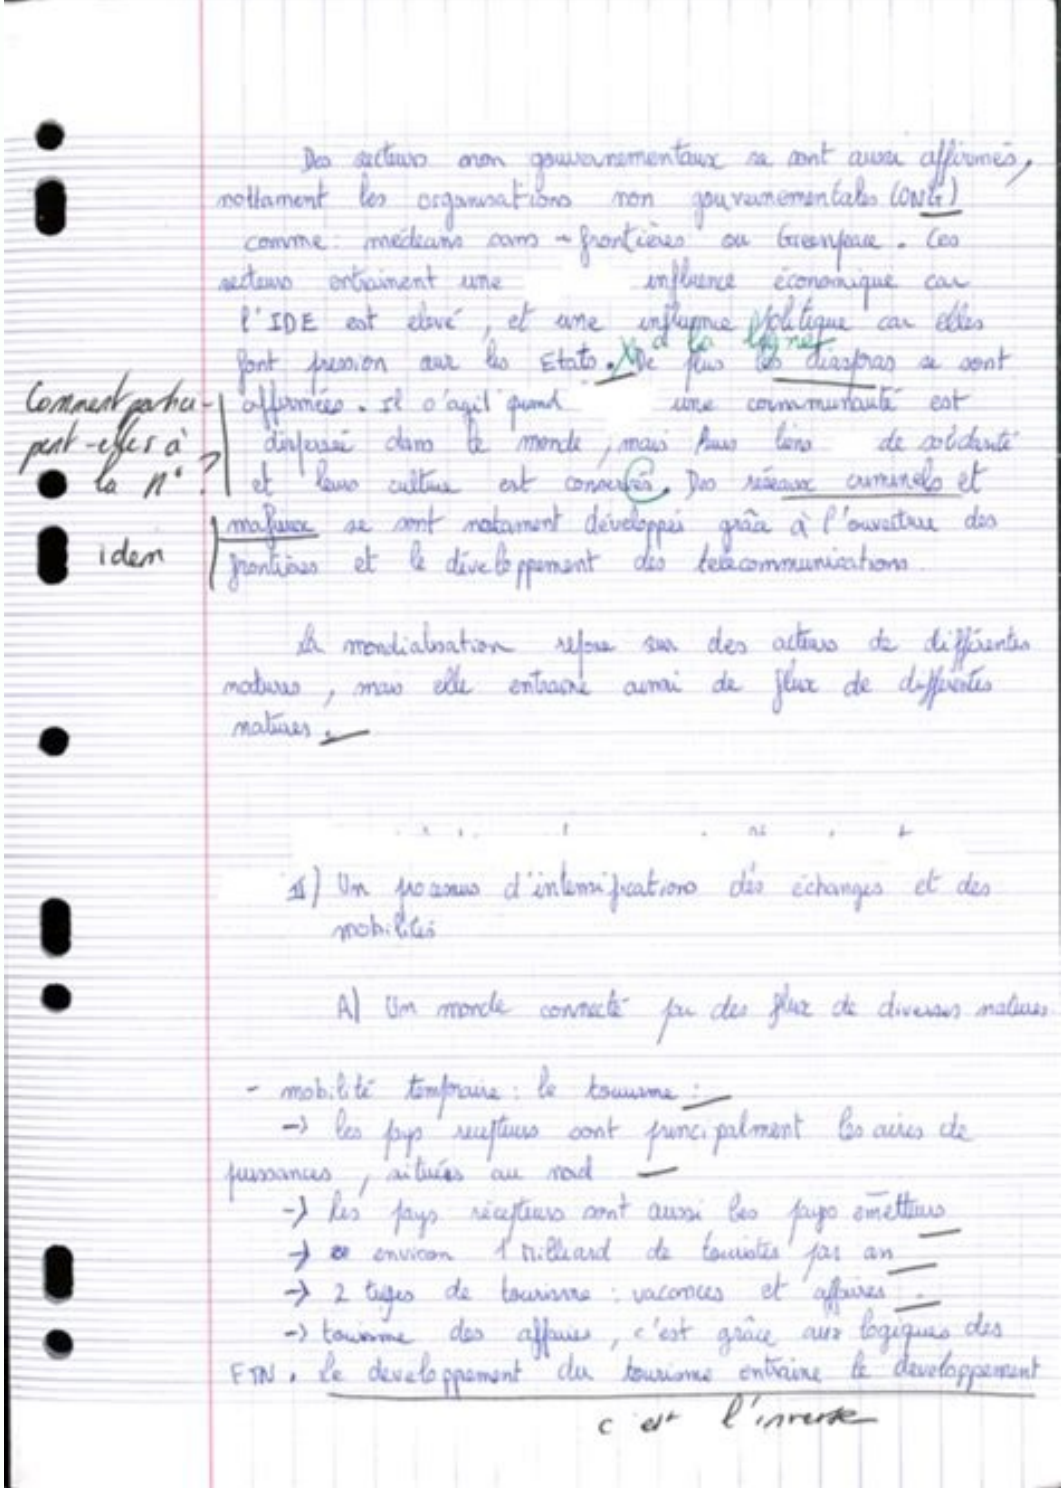 Des secteurs non gouvernementaux se sont aussi affirmés,
nottament les organisations non gouvernementales (ONG)
comme médecins sans-frontières ou Greenpeace. Ces
secteurs entrainent une influence économique car
l'IDE est elevé, et une influence politique car elles
à la ligne
font pression sur les Etats. De plus les diaspras se sont
Comment partici-
affirmées. Il s'agit quand une communauté est
pent-elles à
dispersée dans le monde, mais leurs liens de solidarité
la M° ?
et leurs culture est conservés. Des réseaux criminels et
mafieux se sont notament développés grâce à l'ouverture des
idem
frontières et le développement des telecommunications.
La mondialisation repose sur des acteurs de différentes
natures, mais elle entraine aussi de flux de différentes
natures.
II) Un processus d'intensifications des échanges et des
mobilités
A) Un monde connecté par des flux de diverses natures
- mobilité temporaire : le tourisme :
-> les pays recepteurs sont principalment les aires de
puissances, situées au nord
-> les pays récepteurs sont aussi les pays émetteurs
-> environ 1 milliard de touristes par an
-> 2 types de tourisme : vacances et affaires.
-> tourisme des affaires, c'est grâce aux logiques des
FTN. Le developpement du tourisme entraine le developpement
c'est l'inverse